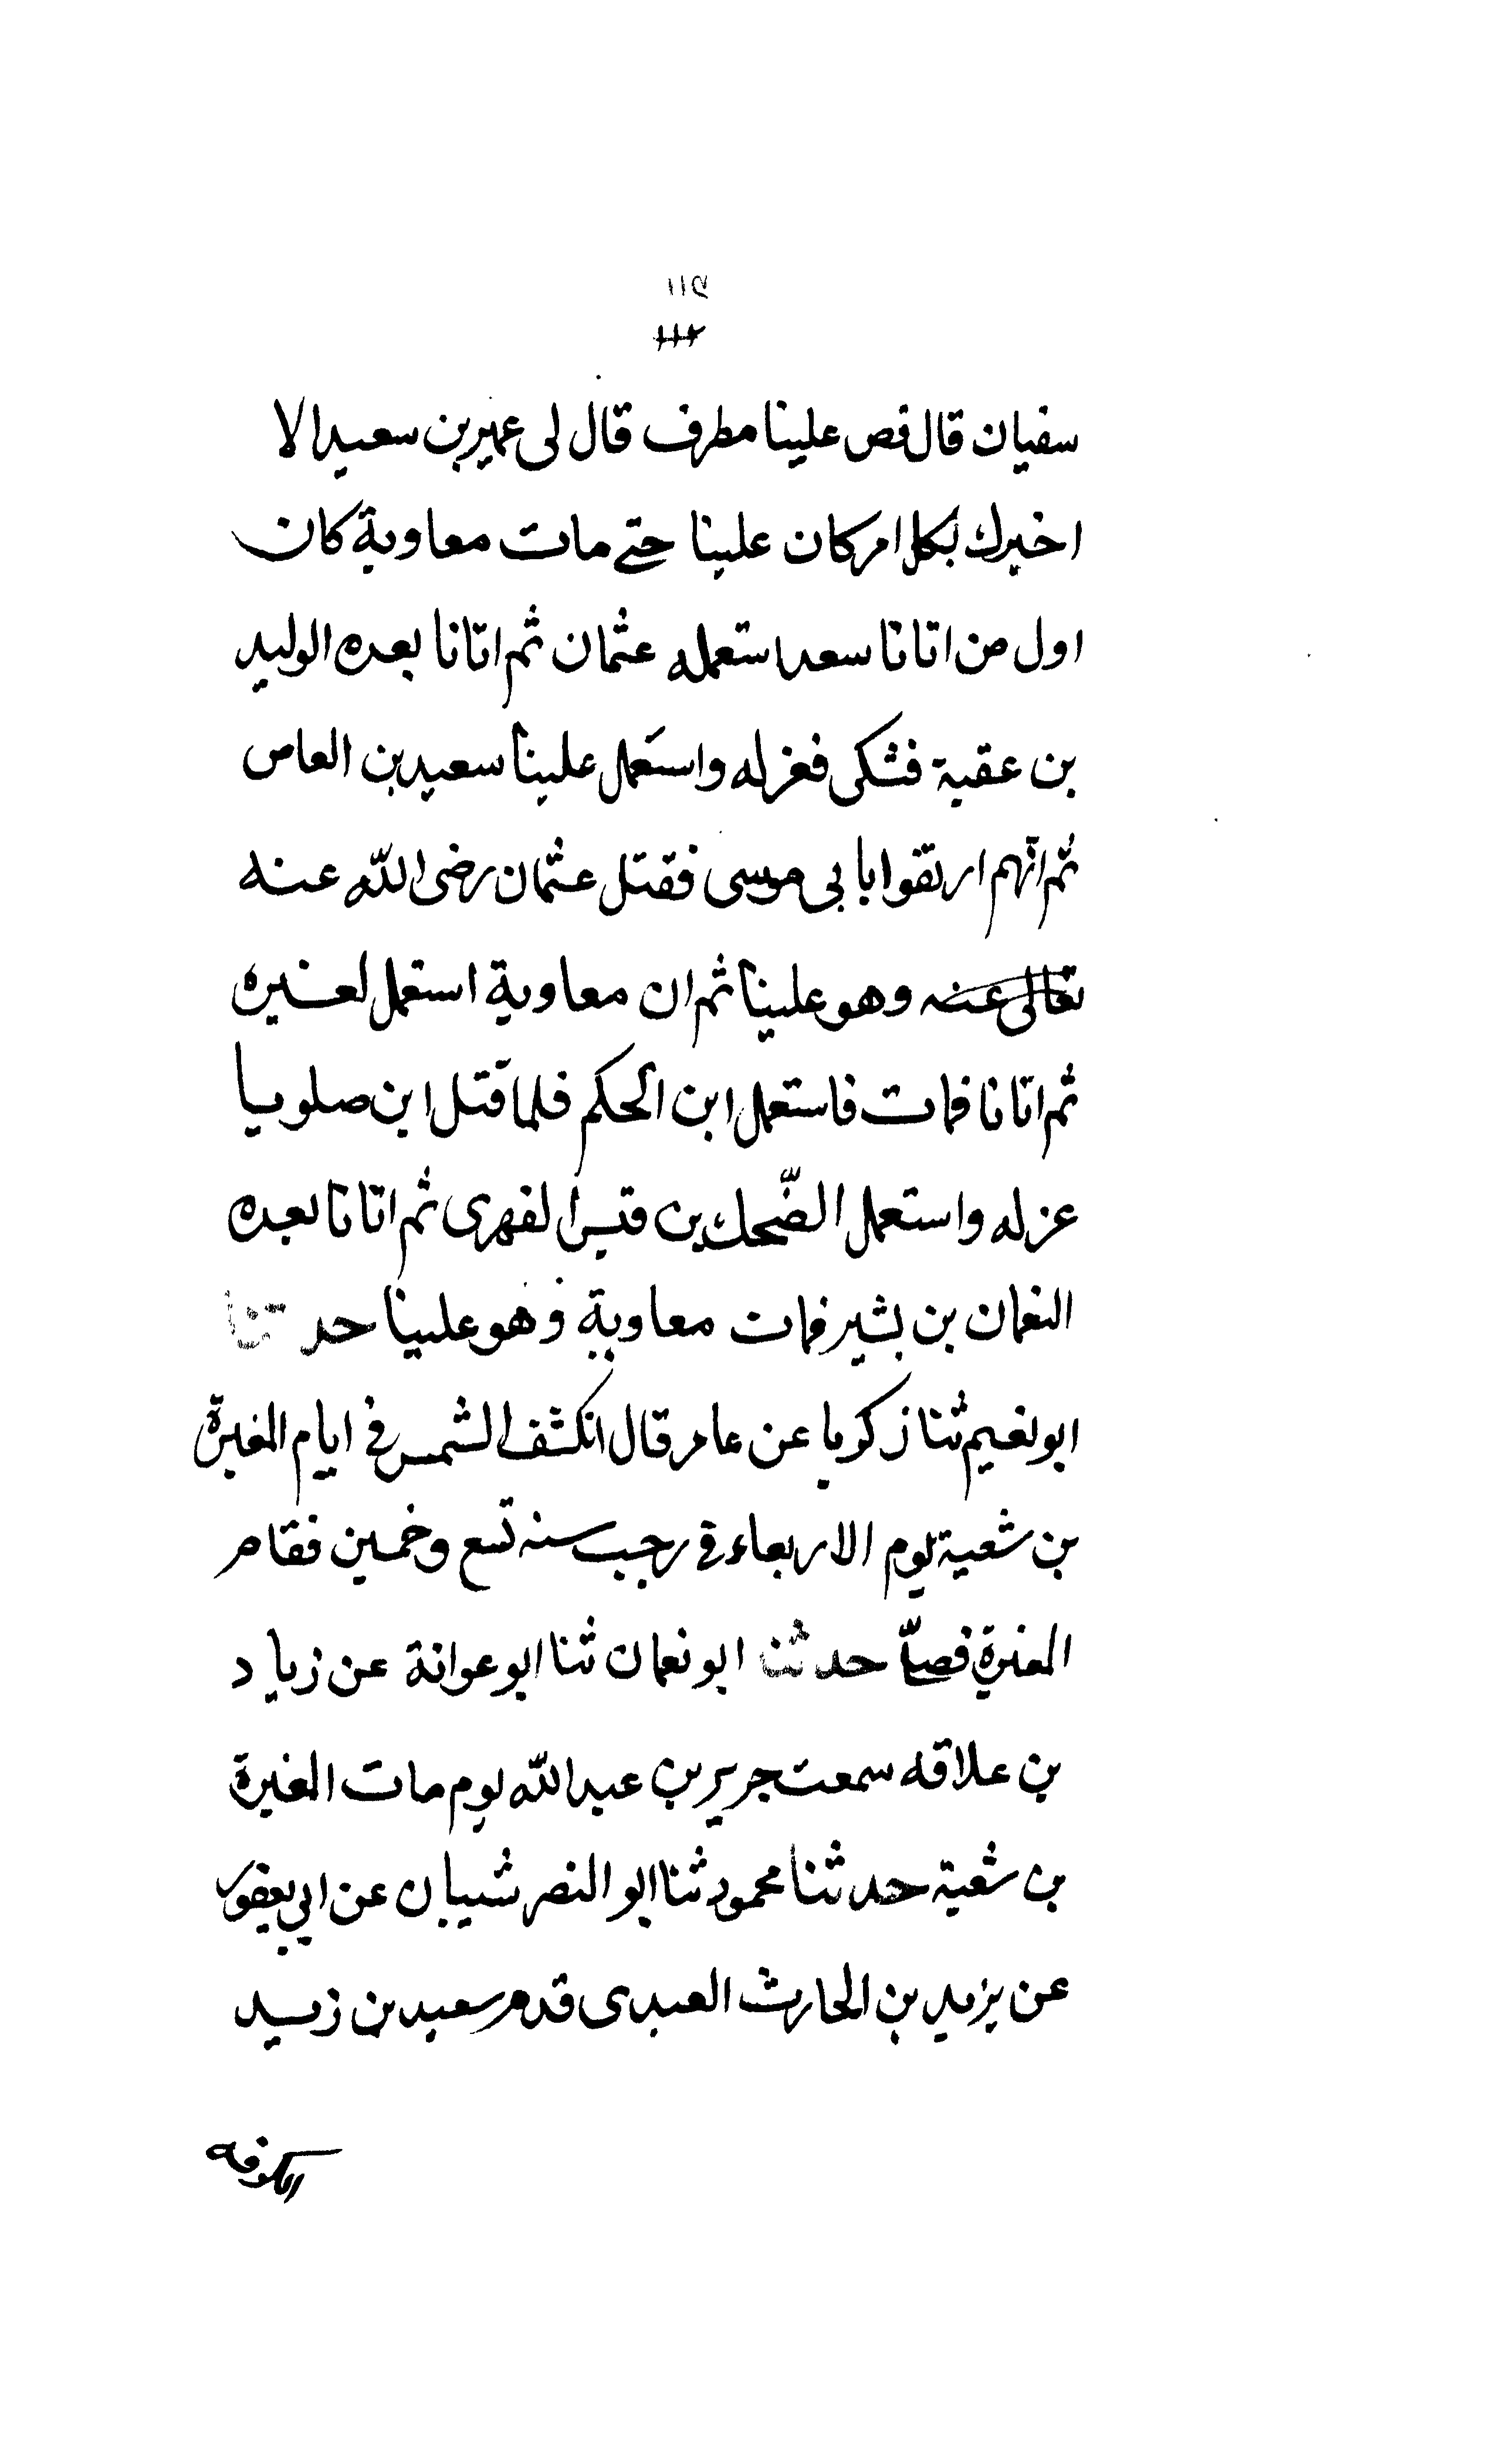 ١١٥
١١٢
سفيان قال قص علينا مطرف قال لى عمير بن سعيد الا
اخبرك بكل امر كان علينا حتى مات معاوية كان
اول من اتانا سعد استعمله عثمان ثم اتانا بعده الوليد
بن عقبة فشكى فعزله واستعمل علينا سعيد بن العاص
ثم انهم ارتقوا بابى موسى فقتل عثمان رضى الله عنه
تعالى عنه وهو علينا ثم ان معاوية استعمل لغيره
ثم اتانا فمات فاستعمل ابن الحكم فلما قتل ابن صلوبا
عزله واستعمل الضحك بن قيس الفهرى ثم اتانا بعده
النعمان بن بشير فمات معاوية وهو علينا حدثنا
ابو نعيم ثنا زكريا عن عامر قال انكشف الشمس فى ايام المغيرة
بن شعبة يوم الاربعاء فى رجب سنه تسع وخمسين فقام
المغيرة فصلّا حدثنا ابو نعمان ثنا ابو عوانة عن زياد
بن علاقه سمعت جرير بن عبد الله يوم مات المغيرة
بن شعبة حدثنا محمود ثنا ابو النضر شيبان عن ابى يعفور
عن يزيد بن الحارث العبدى قدم سعيد بن زيد
الكوفه